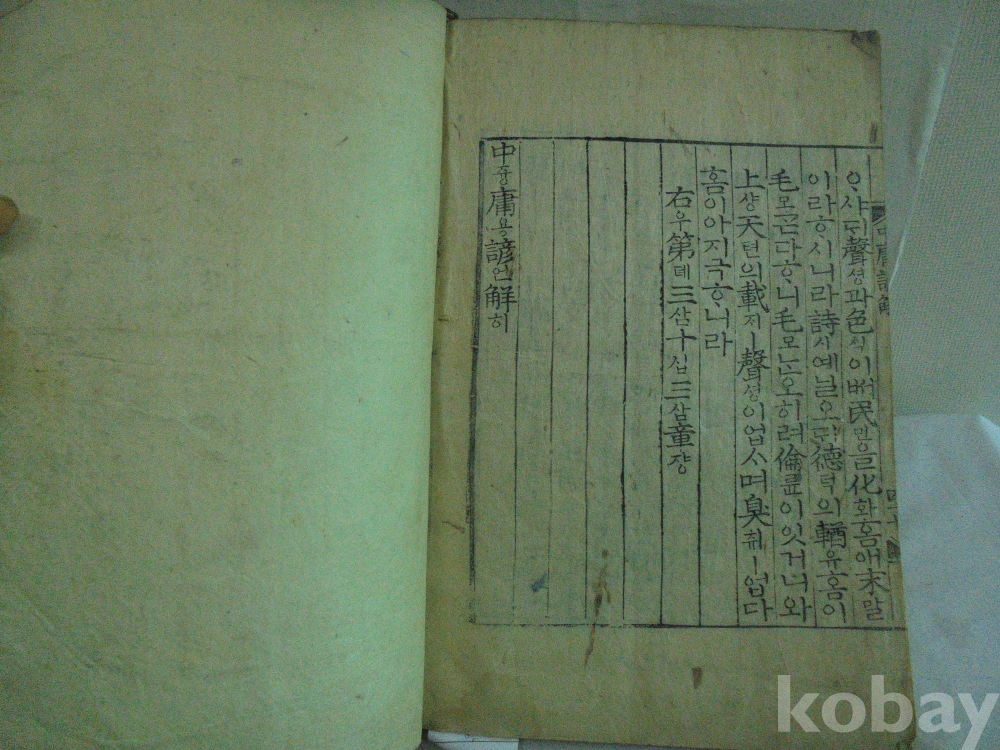 中庸諺解
ᄋᆞ샤ᄃᆡ聲셩과色식이ᄡᅥ民민을化화홈애末말
이라ᄒᆞ시니라詩시예닐오ᄃᆡ德덕의輶유홈이
毛모ᄀᆞᆮ다ᄒᆞ니毛모ᄂᆞᆫ오히려倫륜이잇거니와
上샹天텬의載지ㅣ聲셩이업스며臭취ㅣ업다
홈이아지극ᄒᆞ니라
右우第뎨三삼十십三삼章쟝
中듕庸용諺언解히
kobay